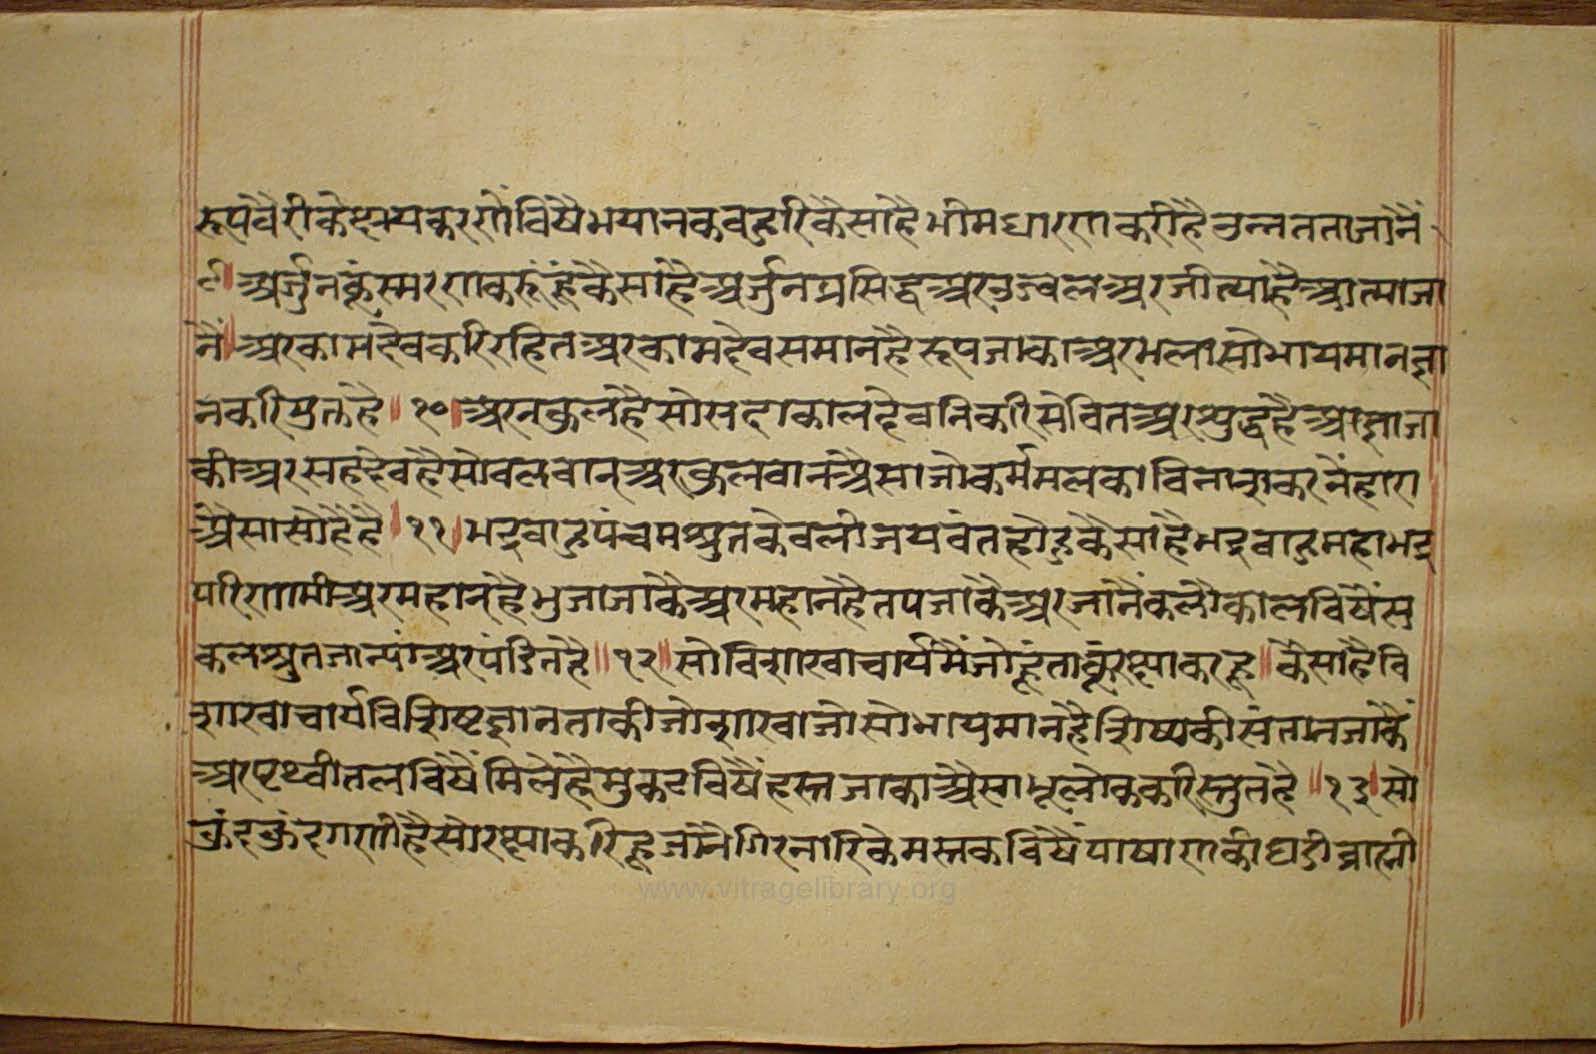 रूपवैरीकेक्षयकरणेंविषैभयानकबहुरिकैसाहैभीमधारणाकरीहैउन्नतताजानैं
९॥अर्जुनकूंस्मरणकरूंहूंकैसाहैअर्जुनप्रसिद्धअरउज्वलअरजीत्याहैआत्माजा
नैं॥अरकामदेवकरिरहितअरकामदेवसमानहैरूपजाकाअरभलासोभायमानज्ञा
नकरियुक्तहै॥१०॥अरनकुलहैसोसदाकालदेवनिकरिसेवितअरशुद्धहैआज्ञाजा
कीअरसहदेवहैसोबलवान्अरकुलवानअैसाजोकर्ममलकाविनाशकरनेंहारा
अैसासोहैहै॥११॥भद्रबाहुपंचमश्रुतकेवलीजयवंतहोहुकैसाहैभद्रबाहुमहाभद्र
परिणामीअरमहान्हैभुजाजाकैअरमहानहैतपजाकैअरजानैंकलौकालविषैंस
कलश्रुतजान्यांअरपंडितहै॥१२॥सोविशाखाचार्यमैंजोहूंताकूंरक्षाकरहू॥कैसाहैवि
शाखाचार्यविशिष्टज्ञानताकीजोशाखाजोसोभायमानहैशिष्यकीसंतानजाकैं
अरपृथ्वीतलविषैंमिलेहैमुकटविषैंहस्तजाकाअैसाभूलोककरिस्तुतहै॥१३॥सो
कुंदकुंदगणीहैसोरक्षाकरिहूजानैगिरनारिकेमस्तकविषैंपाषाणकीघडीब्राह्मी
www.vitragelibrary.org